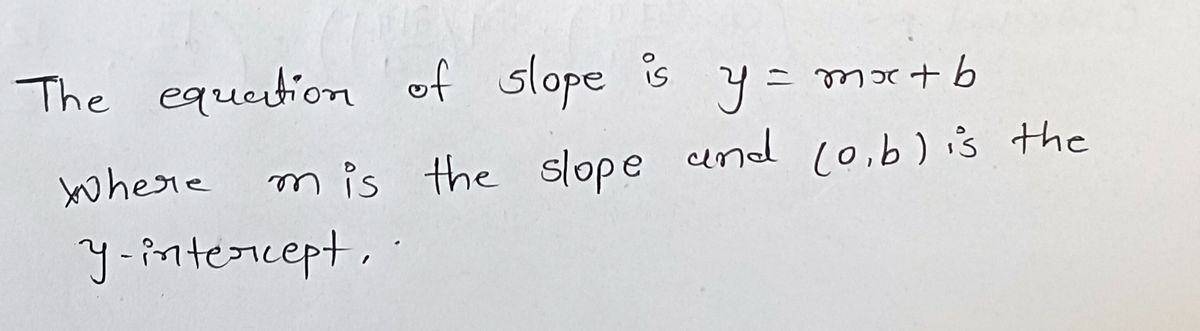 The equation of slope is y = mx + b
where m is the slope and (0,b) is the
y-intercept.